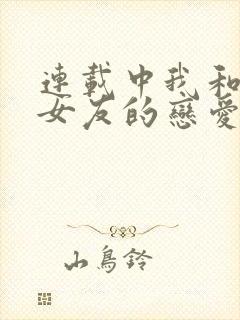 連載中我和
女友的戀愛
山鳥鈴